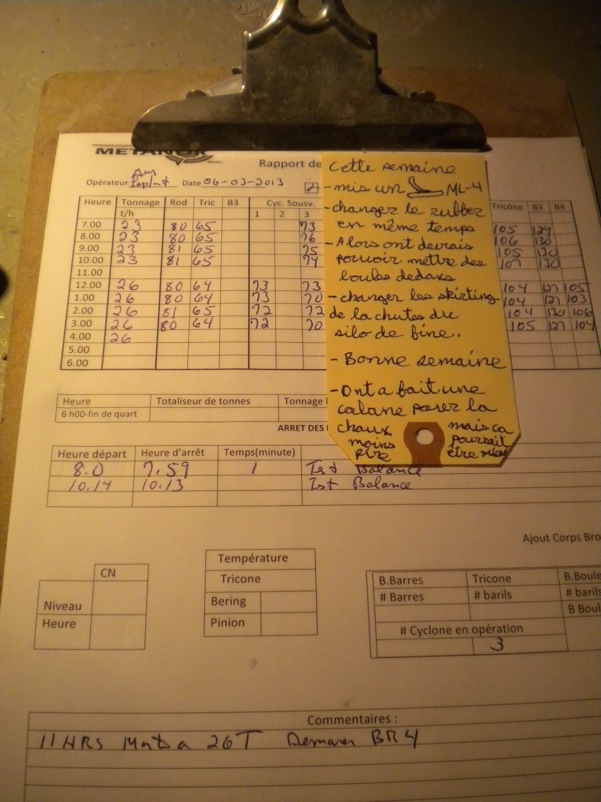 METANOR
Rapport de
Opérateur Date 06-03-2013
Heure Tonnage Rod Tric B3 Cyc. Sousv. Tricône B3 B4
t/h 1 2 3
7.00 23 80 65 73 105 129
8.00 23 80 65 76 106 130
9.00 23 81 65 75 105 130
10.00 23 81 65 74 107 130
11.00
12.00 26 80 64 73 73 104 127 105
1.00 26 80 64 73 70 104 127 103
2.00 26 81 65 72 72 104 130 106
3.00 26 80 64 72 70 105 127 104
4.00 26
5.00
6.00
Cette semaine
- mis un ML-4
- changer le rubber
en même temps
- Alors ont devrais
pouvoir mettre des
boules dedans
- changer les skirting
de la chutes du
silo de fine.
- Bonne semaine
- Ont a fait une
cabane pour la
chaux mais ca
moins pourrait
pire être mieux
Heure Totaliseur de tonnes Tonnage
6 h00-fin de quart
ARRET DES
Heure départ Heure d'arrêt Temps(minute)
8.0 7.59 1 Test Balance
10.14 10.13 Test Balance
Ajout Corps Bro
CN
Niveau
Heure
Température
Tricone
Bering
Pinion
B.Barres Tricone B.Boule
# Barres # barils # barils
B Boul
# Cyclone en opération
3
Commentaires :
11 HRS a 26T Demarer BR4